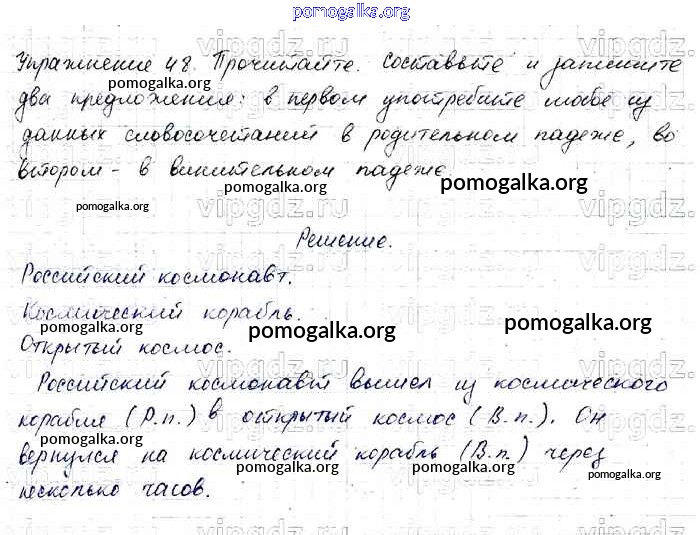 pomogalka.org
Упражнение 48. Прочитайте. Составьте и запишите
pomogalka.org
два предложения: в первом употребите любое из
данных словосочетаний в родительном падеже, во
втором - в винительном падеже.
pomogalka.org
pomogalka.org
pomogalka.org
vipgdz.ru
Решение.
Российский космонавт.
Космический корабль.
pomogalka.org
pomogalka.org
pomogalka.org
Открытый космос.
Российский космонавт вышел из космического
корабля (Р.п.) в открытый космос (В.п.). Он
pomogalka.org
pomogalka.org
вернулся на космический корабль (В.п.) через
pomogalka.org
pomogalka.org
pomogalka.org
несколько часов.